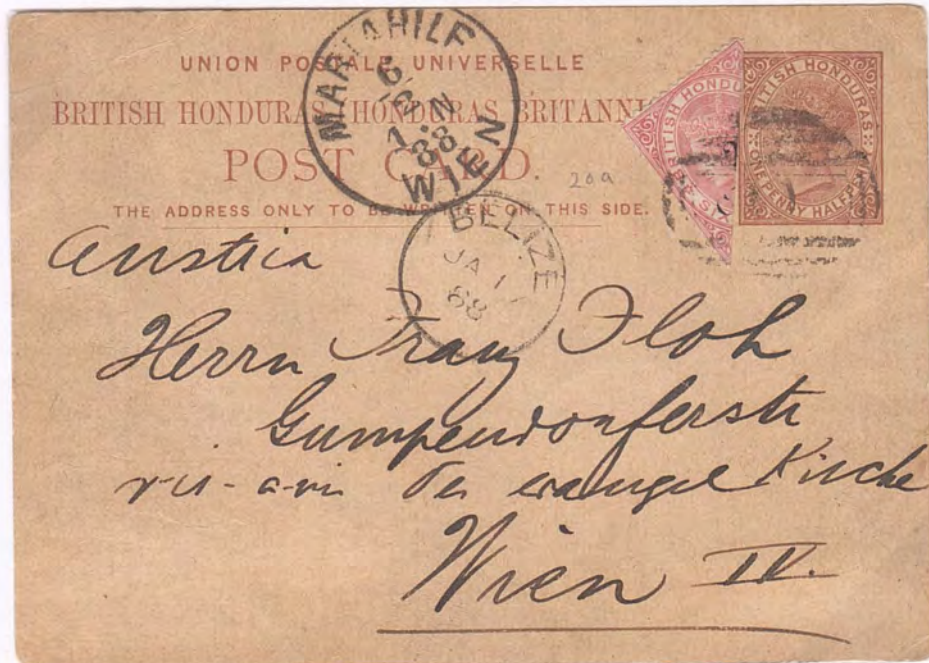 UNION POSTALE UNIVERSELLE
BRITISH HONDURAS HONDURAS BRITANNI
POST CARD.
THE ADDRESS ONLY TO BE WRITTEN ON THIS SIDE.
MARIAHILF
WIEN
88
20a
BRITISH HONDU
BRITISH HONDURAS
ONE PENNY HALFP
BELIZE
JA 1
88
Austria
Herrn Franz Floh
Gumpendorferstr
vis-a-vis der evangel Kirche
Wien IV.